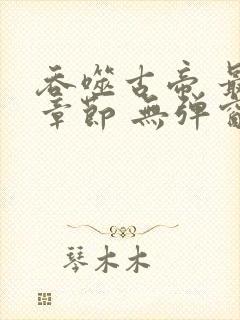 吞噬古帝 最
章節 無弹窗
琴木木